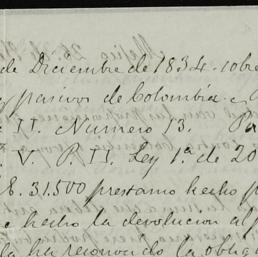 de Diciembre de 1834. sobre
pasivos de Colombia
II. Número 13.
V. P. II. Ley 1ª de 20
E. 31.500 prestamo hecho p
hecho la devolucion al
la ha reconocido la oblig